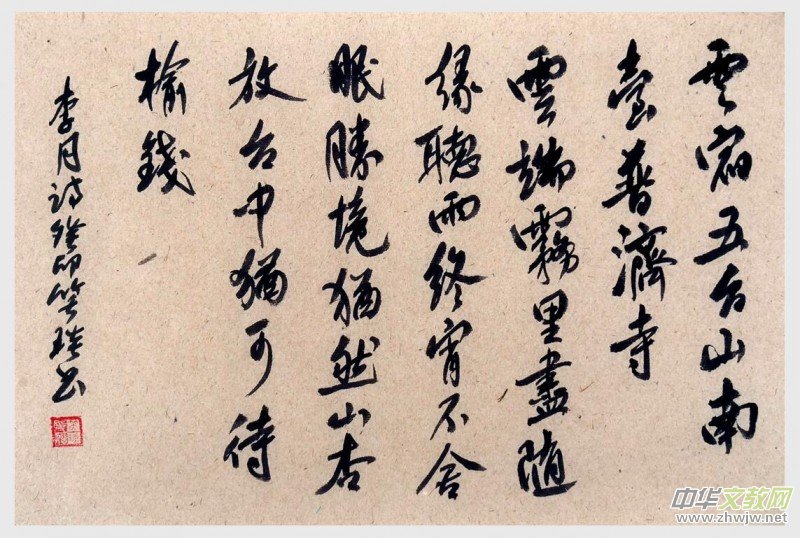 雲宿五台山南
臺普濟寺
雲端霧里盡隨
緣聽雨終宵不舍
眠勝境猶然山杏
放台中猶可待
榆錢
李月詩癸卯笑书
中华文教网
www.zhwjw.net